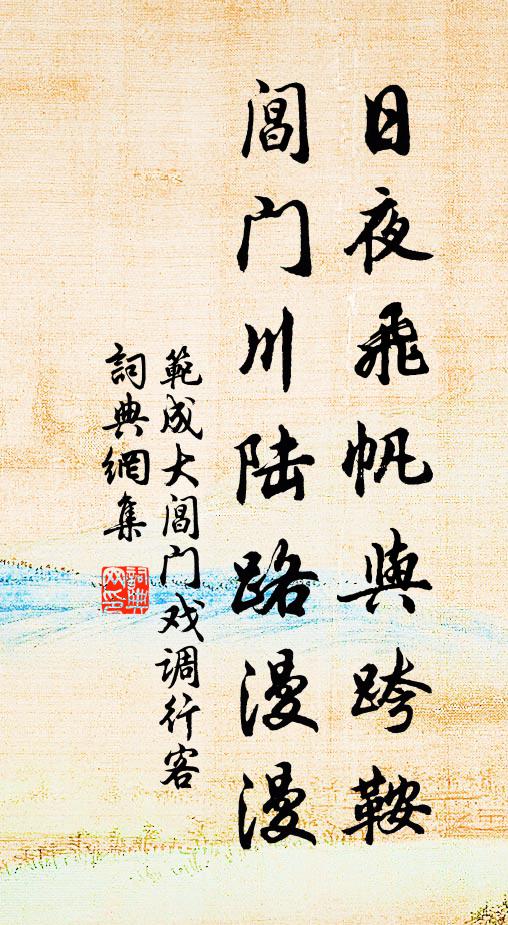 日夜飛帆與跨鞍
阊门川陆路漫漫
範成大阊门戏调行客
詞典網集
詞典网印